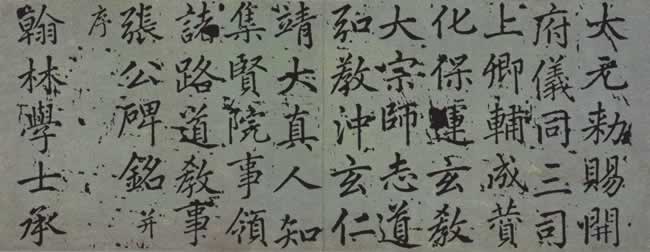 大元勑賜開
府儀同三司
上卿輔成贊
化保運玄教
大宗師志道
弘教沖玄仁
靖大真人知
集賢院事領
諸路道教事
張公碑銘并
序
翰林學士承